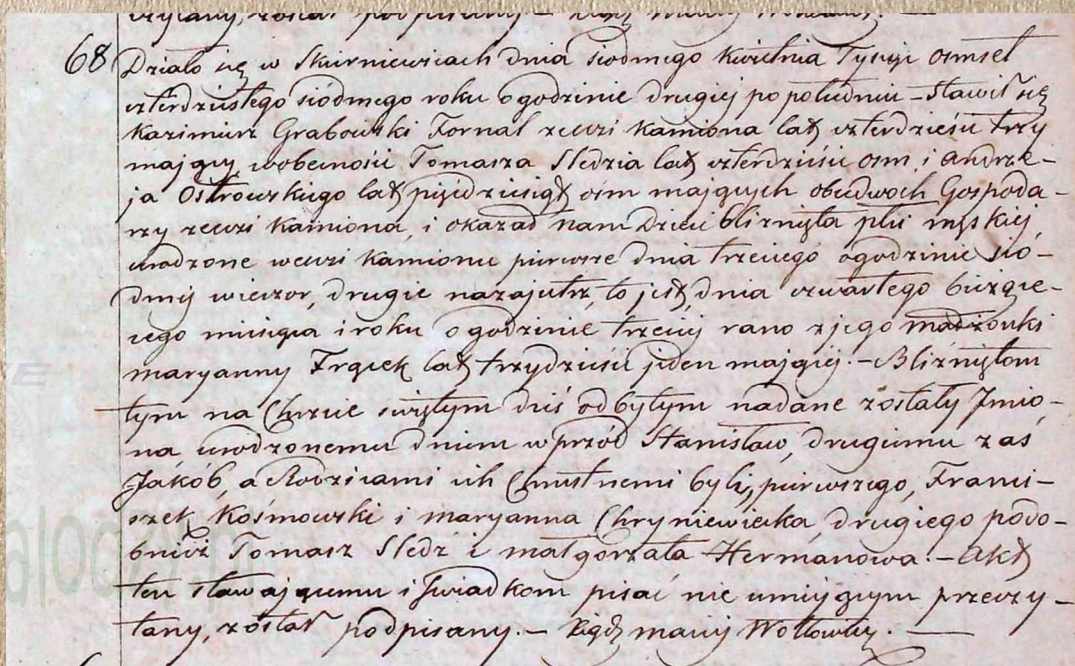 czytany, został podpisany – Xiądz
68 Działo się w Skierniewicach dnia siodmego Kwietnia Tysiąc osmset
czterdziestego siódmego roku o godzinie drugiej po południu – Stawił się
Kazimierz Grabowski Fornal z wsi Kamiona lat czterdzieści trzy
mający, wobecności Tomasza Sledzia lat czterdzieści osm, i Andrze-
ja Ostrowskiego lat pięćdziesiąt osm mających obudwoch Gospoda-
rzy z wsi Kamiona, i okazał nam Dzieci bliznięta płci męskiej,
urodzone we wsi Kamionie pierwsze dnia trzeciego o godzinie sió-
dmej wieczor, drugie nazajutrz, to jest, dnia czwartego bieżące-
cego miesiąca i roku o godzinie trzeciej rano z jego małżonki
Maryanny Frącek lat trzydzieści jeden mającej. – Bliźniętom
tym na Chrzcie świętym dziś odbytym nadane zostały Jmio-
na, urodzonemu dniem wprzód Stanisław, drugiemu zaś
Jakób, a Rodzicami ich Chrzestnemi byli, pierwszego, Franci-
szek Kośmowski i Maryanna Chryniewiecka drugiego podo-
bnież Tomasz Sledź i Małgorzata Hermanowa. – Akt
ten stawającemu i Świadkom pisać nie umiejącym przeczy-
tany, został podpisany. – Xiądz Maciej